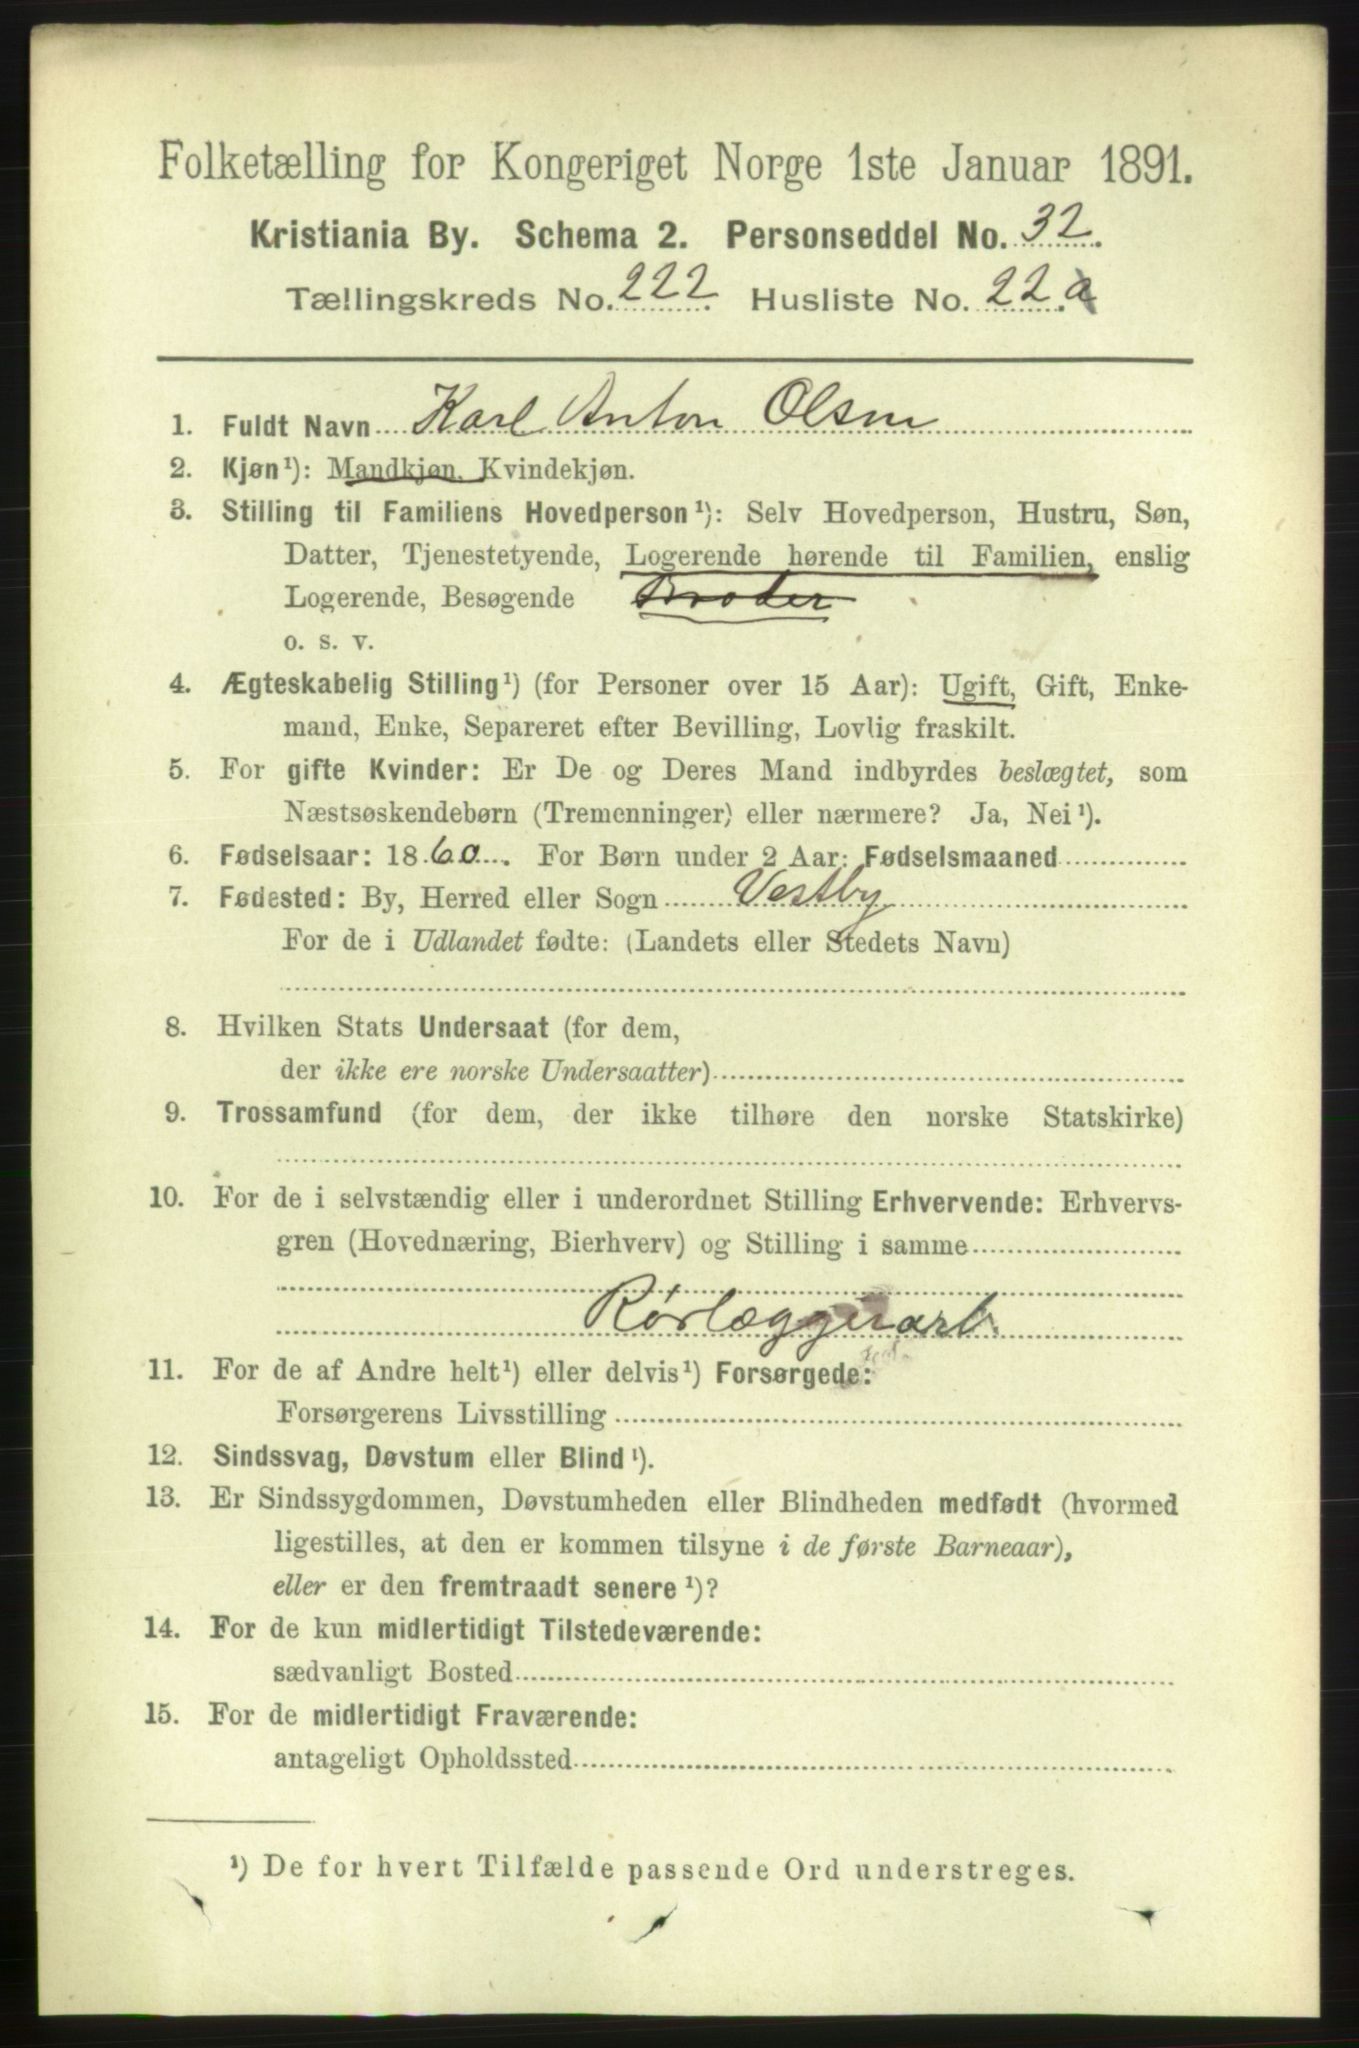 Folketælling for Kongeriget Norge 1ste Januar 1891.
Kristiania By. Schema 2. Personseddel No. 32.
Tællingskreds No. 222. Husliste No. 22.a
1. Fuldt Navn Karl Anton Olsen
2. Kjøn¹): Mandkjøn, Kvindekjøn.
3. Stilling til Familiens Hovedperson¹): Selv Hovedperson, Hustru, Søn,
Datter, Tjenestetyende, Logerende hørende til Familien, enslig
Logerende, Besøgende Broder
o. s. v.
4. Ægteskabelig Stilling¹) (for Personer over 15 Aar): Ugift, Gift, Enke-
mand, Enke, Separeret efter Bevilling, Lovlig fraskilt.
5. For gifte Kvinder: Er De og Deres Mand indbyrdes beslægtet, som
Næstsøskendebørn (Tremenninger) eller nærmere? Ja, Nei¹).
6. Fødselsaar: 1860. For Børn under 2 Aar: Fødselsmaaned
7. Fødested: By, Herred eller Sogn Vestby
For de i Udlandet fødte: (Landets eller Stedets Navn)
8. Hvilken Stats Undersaat (for dem,
der ikke ere norske Undersaatter)
9. Trossamfund (for dem, der ikke tilhøre den norske Statskirke)
10. For de i selvstændig eller i underordnet Stilling Erhvervende: Erhvervs-
gren (Hovednæring, Bierhverv) og Stilling i samme
Rørlæggerarb.
11. For de af Andre helt¹) eller delvis¹) Forsørgede:
Forsørgerens Livsstilling
12. Sindssvag, Døvstum eller Blind¹).
13. Er Sindssygdommen, Døvstumheden eller Blindheden medfødt (hvormed
ligestilles, at den er kommen tilsyne i de første Barneaar),
eller er den fremtraadt senere¹)?
14. For de kun midlertidigt Tilstedeværende:
sædvanligt Bosted
15. For de midlertidigt Fraværende:
antageligt Opholdssted
¹) De for hvert Tilfælde passende Ord understreges.